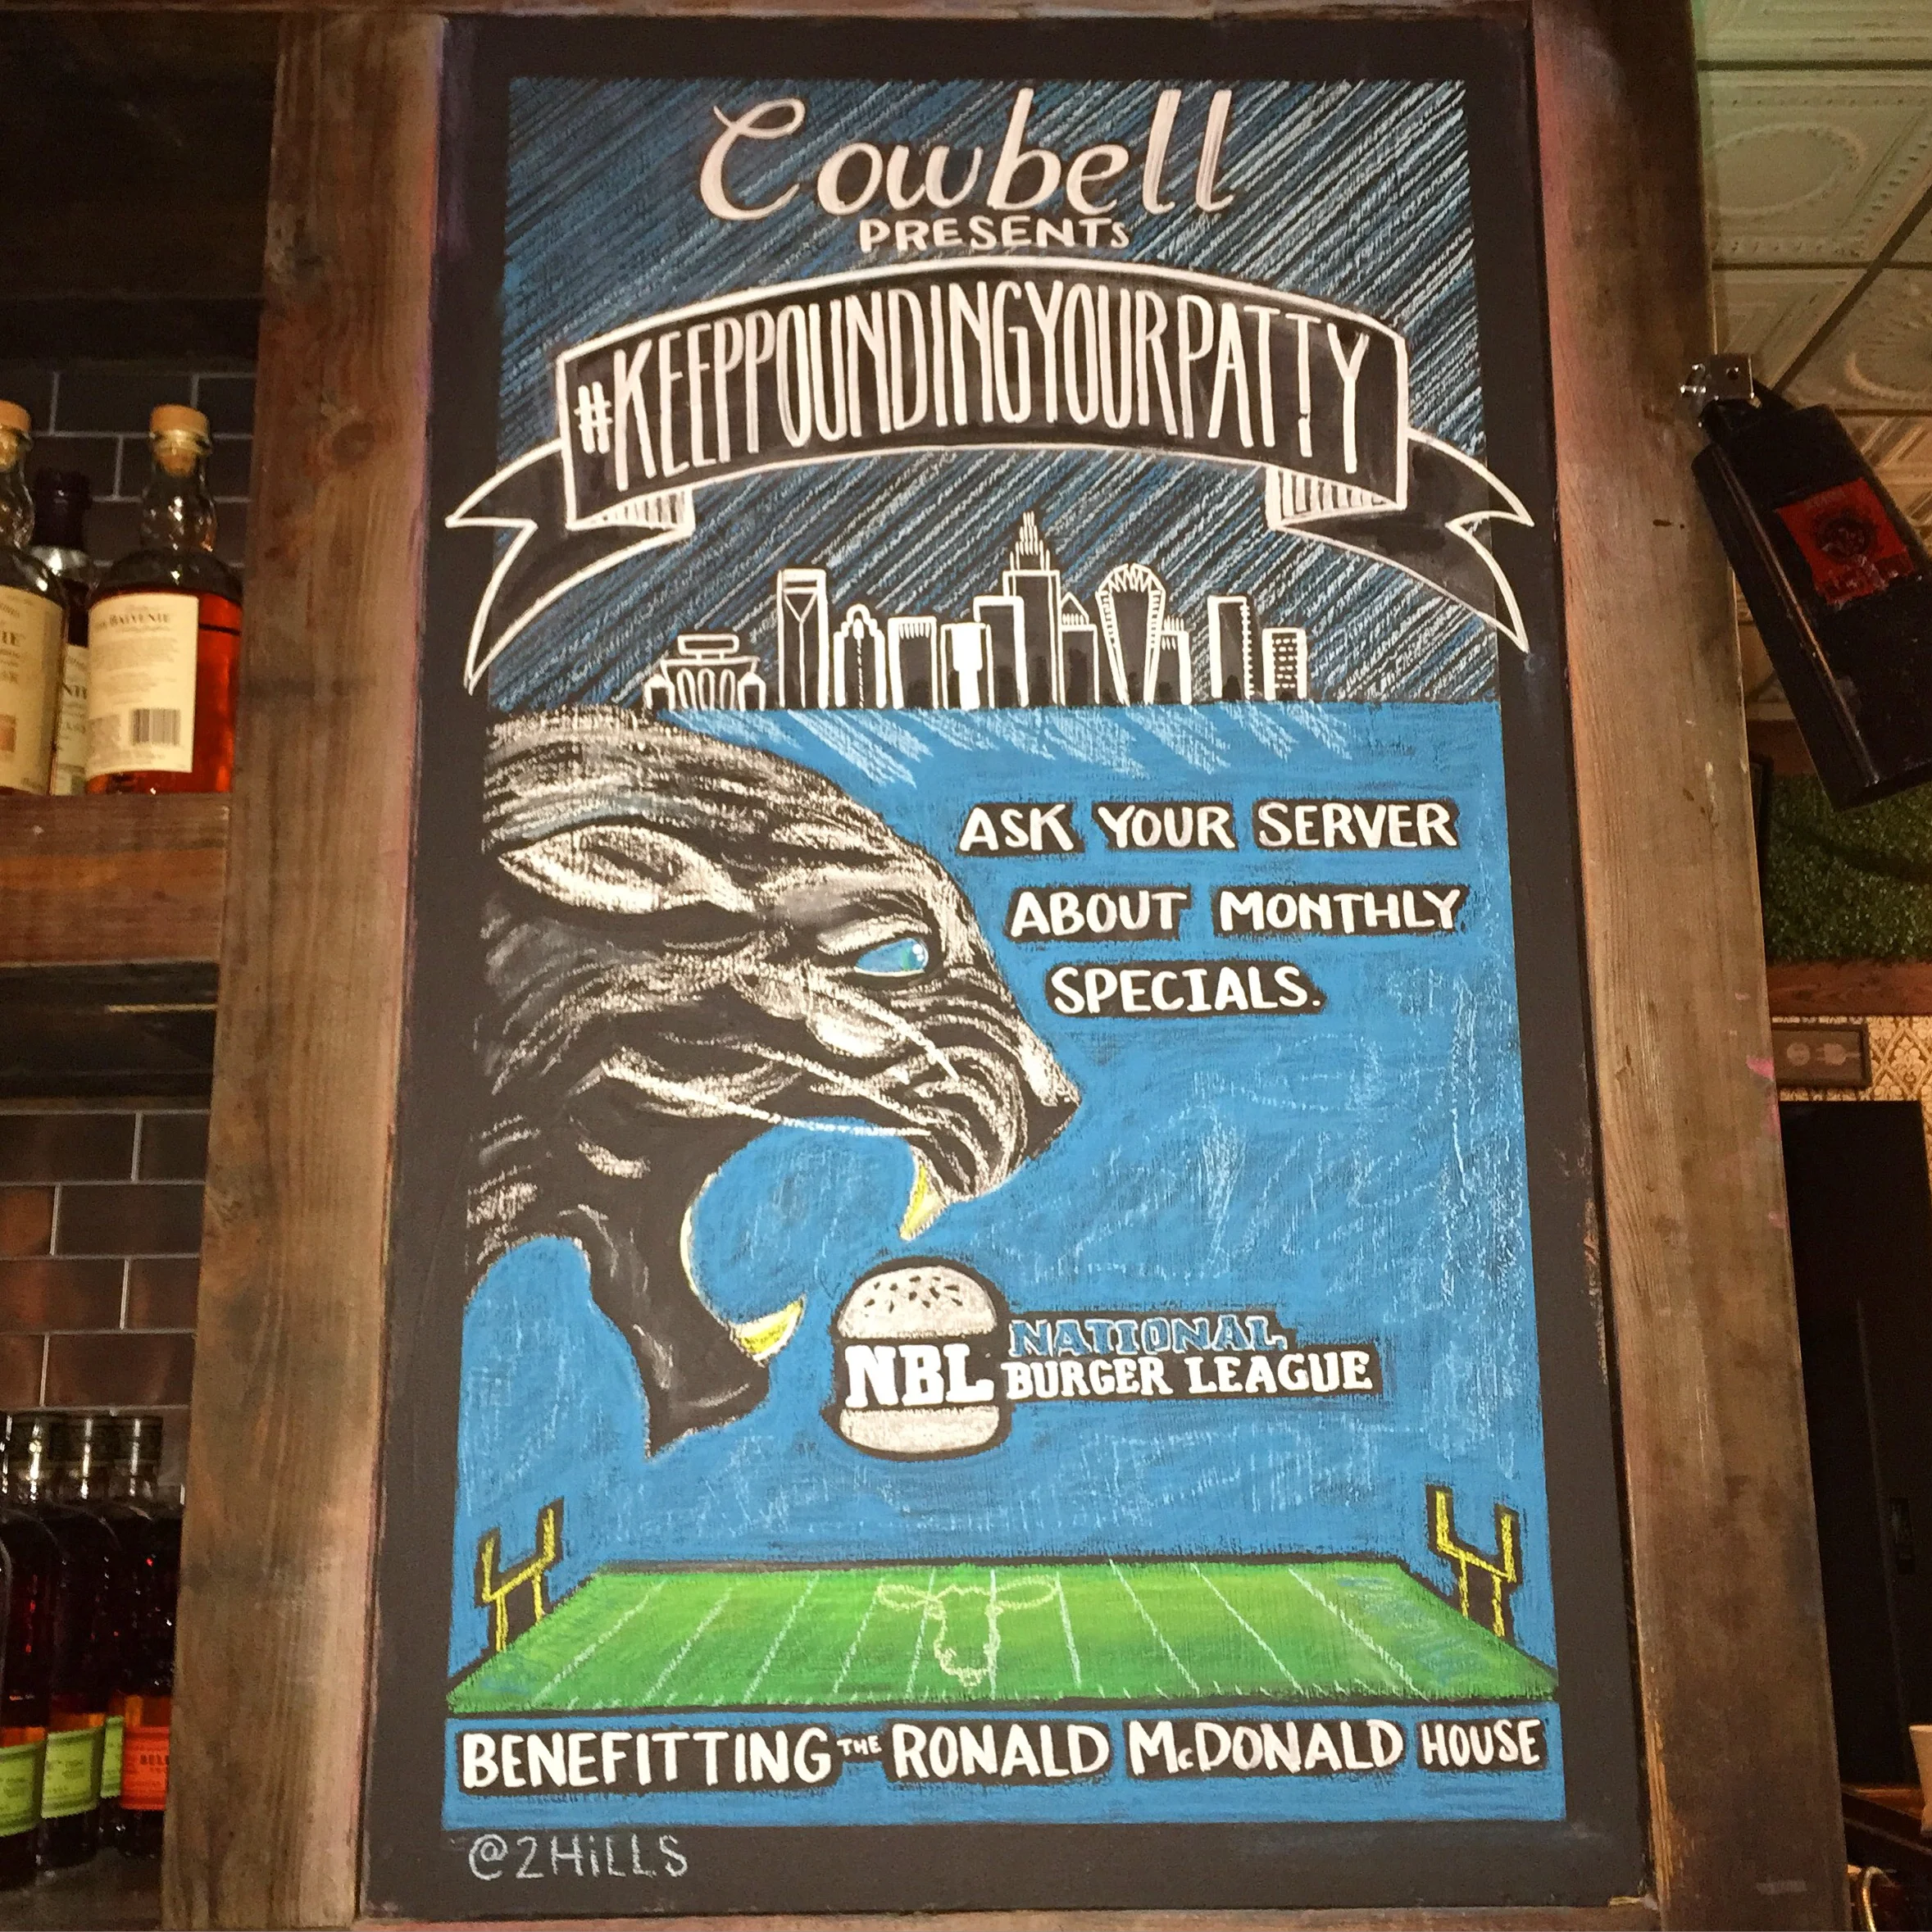 Cowbell
PRESENTS
#KEEPPOUNDINGYOURPATTY
ASK YOUR SERVER
ABOUT MONTHLY
SPECIALS.
NBL NATIONAL
BURGER LEAGUE
BENEFITTING THE RONALD McDONALD HOUSE
@2HiLLS
BALVENIE